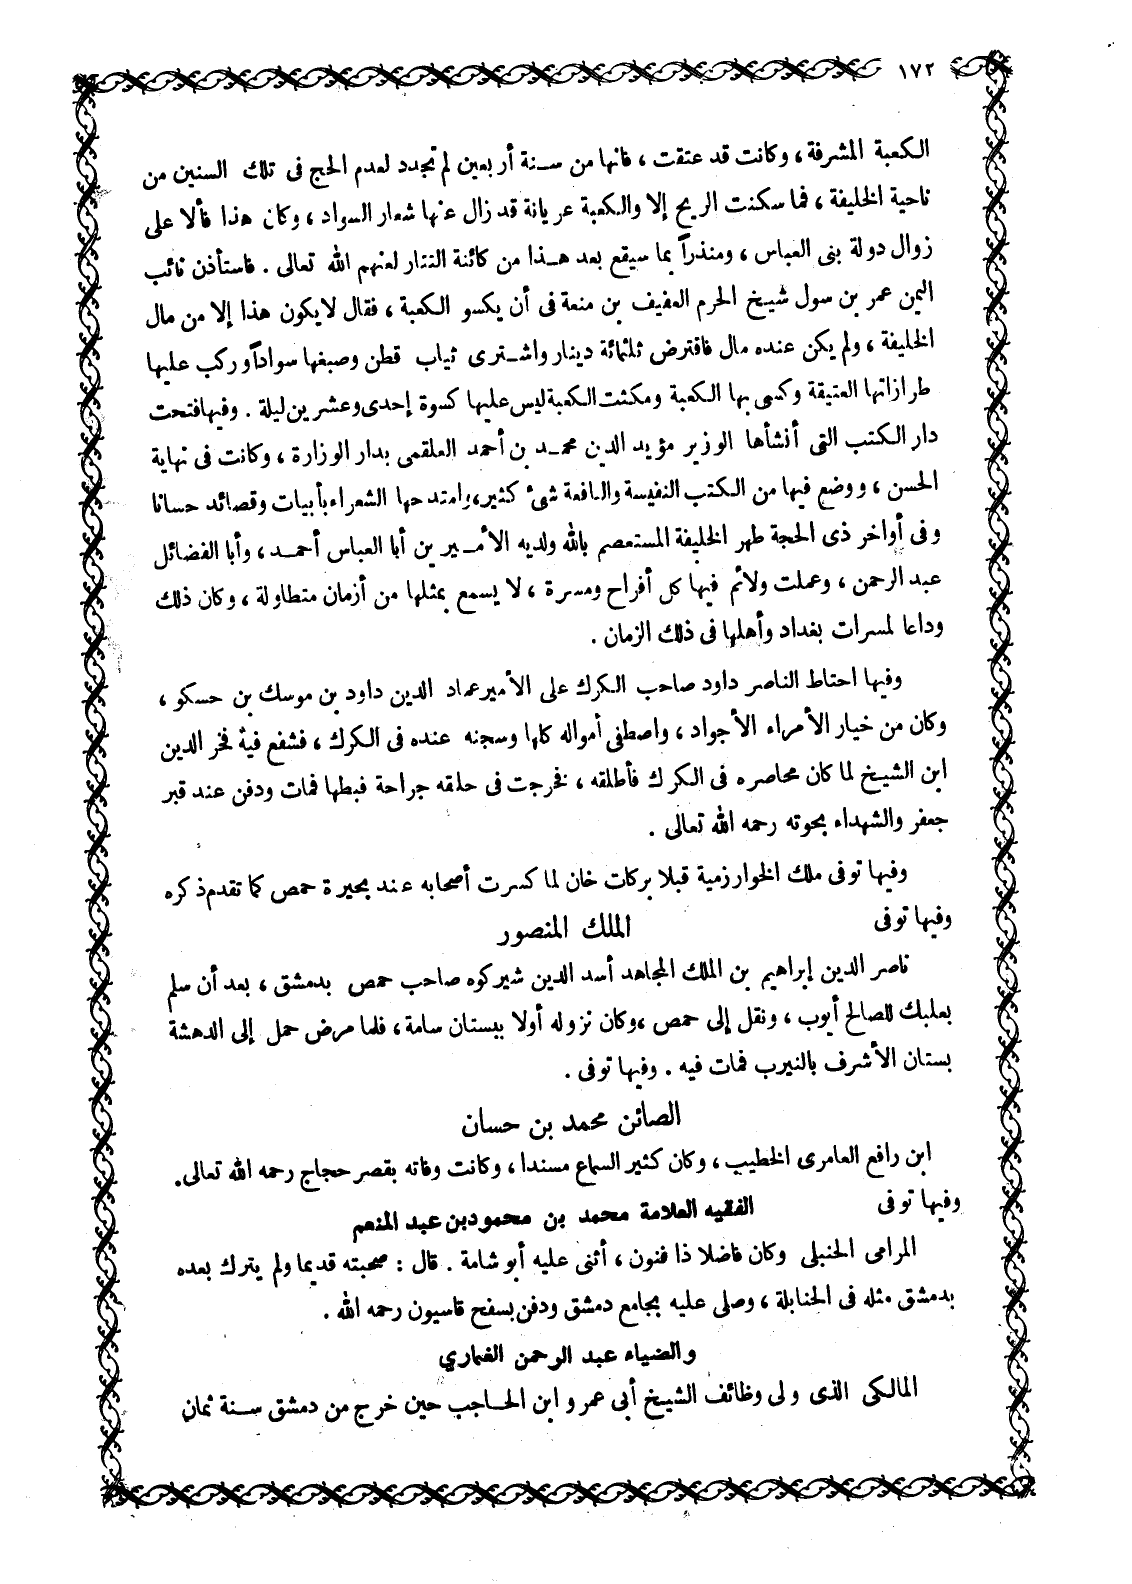 ١٧٢
الكعبة المشرفة ، وكانت قد عتقت ، فانها من سنة أربعين لم تجدد لعدم الحج فى تلك السنين من
ناحية الخليفة ، فما سكنت الريح إلا والكعبة عريانة قد زال عنها شعار السواد ، وكان هذا فألا على
زوال دولة بنى العباس ، ومنذراً بما سيقع بعد هذا من كائنة التتار لعنهم الله تعالى . فاستأذن نائب
اليمن عمر بن سول شيخ الحرم العفيف بن منعة فى أن يكسو الكعبة ، فقال لا يكون هذا إلا من مال
الخليفة ، ولم يكن عنده مال فاقترض ثلثمائة دينار واشترى ثياب قطن وصبغها سواداً وركب عليها
طرازاتها العتيقة وكسى بها الكعبة ومكثت الكعبة ليس عليها كسوة إحدى وعشرين ليلة . وفيها فتحت
دار الكتب التى أنشأها الوزير مؤيد الدين محمد بن أحمد العلقمى بدار الوزارة ، وكانت فى نهاية
الحسن ، ووضع فيها من الكتب النفيسة والنافعة شئ كثير ، وامتدحها الشعراء بأبيات وقصائد حسانا
وفى أواخر ذى الحجة طهر الخليفة المستعصم بالله ولديه الأميرين أبا العباس أحمد ، وأبا الفضائل
عبد الرحمن ، وعملت ولائم فيها كل أفراح ومسرة ، لا يسمع بمثلها من أزمان متطاولة ، وكان ذلك
وداعا لمسرات بغداد وأهلها فى ذلك الزمان .
وفيها احتاط الناصر داود صاحب الكرك على الأمير عماد الدين داود بن موسك بن حسكو ،
وكان من خيار الأمراء الأجواد ، واصطفى أمواله كلها وسجنه عنده فى الكرك ، فشفع فية فخر الدين
ابن الشيخ لما كان محاصره فى الكرك فأطلقه ، فخرجت فى حلقه جراحة فبطها فمات ودفن عند قبر
جعفر والشهداء بحوته رحمه الله تعالى .
وفيها توفى ملك الخوارزمية قبلا بركات خان لما كسرت أصحابه عند بحيرة حمص كما تقدم ذكره
وفيها توفى الملك المنصور
ناصر الدين إبراهيم بن الملك المجاهد أسد الدين شيركوه صاحب حمص بدمشق ، بعد أن سلم
بعلبك للصالح أيوب ، ونقل إلى حمص ، وكان نزوله أولا ببستان سامة ، فلما مرض حمل إلى الدهشة
بستان الأشرف بالنيرب فمات فيه . وفيها توفى .
الصائن محمد بن حسان
ابن رافع العامرى الخطيب ، وكان كثير السماع مسندا ، وكانت وفاته بقصر حجاج رحمه الله تعالى .
وفيها توفى الفقيه العلامة محمد بن محمود بن عبد المنعم
المرامى الحنبلى وكان فاضلا ذا فنون ، أثنى عليه أبو شامة . قال : صحبته قديما ولم يترك بعده
بدمشق مثله فى الحنابلة ، وصلى عليه بجامع دمشق ودفن بسفح قاسيون رحمه الله .
والضياء عبد الرحمن الغماري
المالكى الذى ولى وظائف الشيخ أبى عمرو ابن الحاجب حين خرج من دمشق سنة ثمان